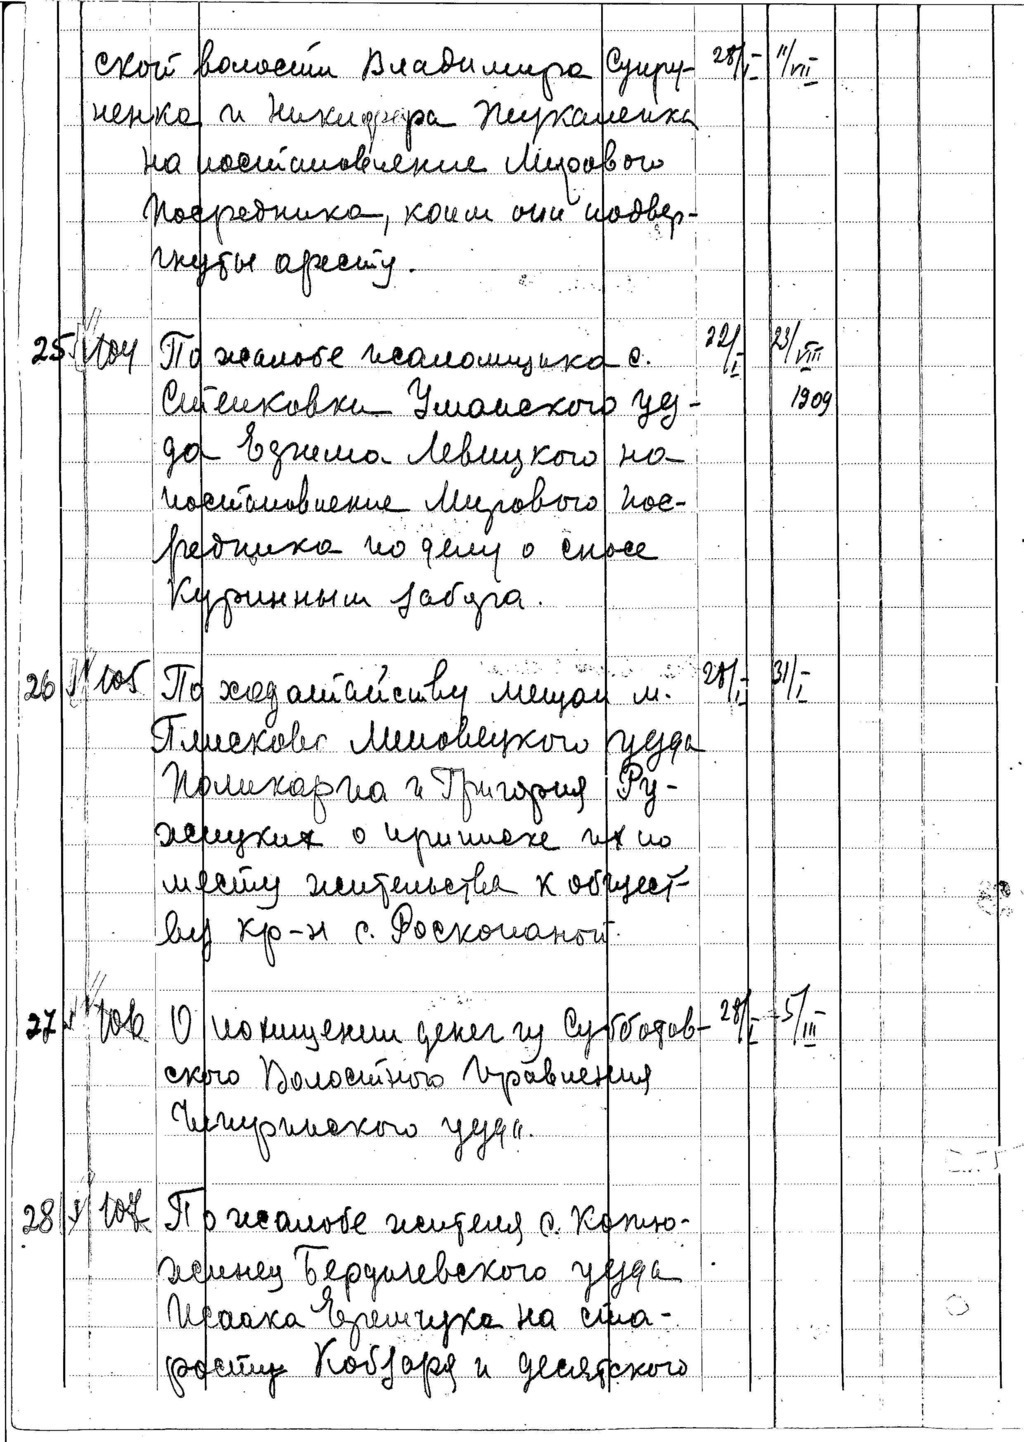 ской волости Владимира Супру- 28/I 11/VII
ненка и Никифора
на постановление Мирового
Посредника, коим они подвер-
гнуты аресту.
25 104 По жалобе псаломщика с. 22/I 23/VIII
Степковки Уманского уез- 1909
да Левицкого на
постановление Мирового Пос-
редника по делу о сносе
Куринным забора.
26 105 По ходатайству мещан м. 28/I 31/I
Плискова Липовецкого уезда
Поликарпа и Григория Ру-
жицких о приписке их по
месту жительства к общест-
ву кр-н с. Роскопаной.
27 106 О похищении денег из Субботов- 28/I 5/III
ского Волостного Правления
Чигиринского уезда.
28 107 По жалобе жителя с. Копию-
жинец Бердичевского уезда
Исаака Еремчука на ста-
росту Кобзаря и десятского